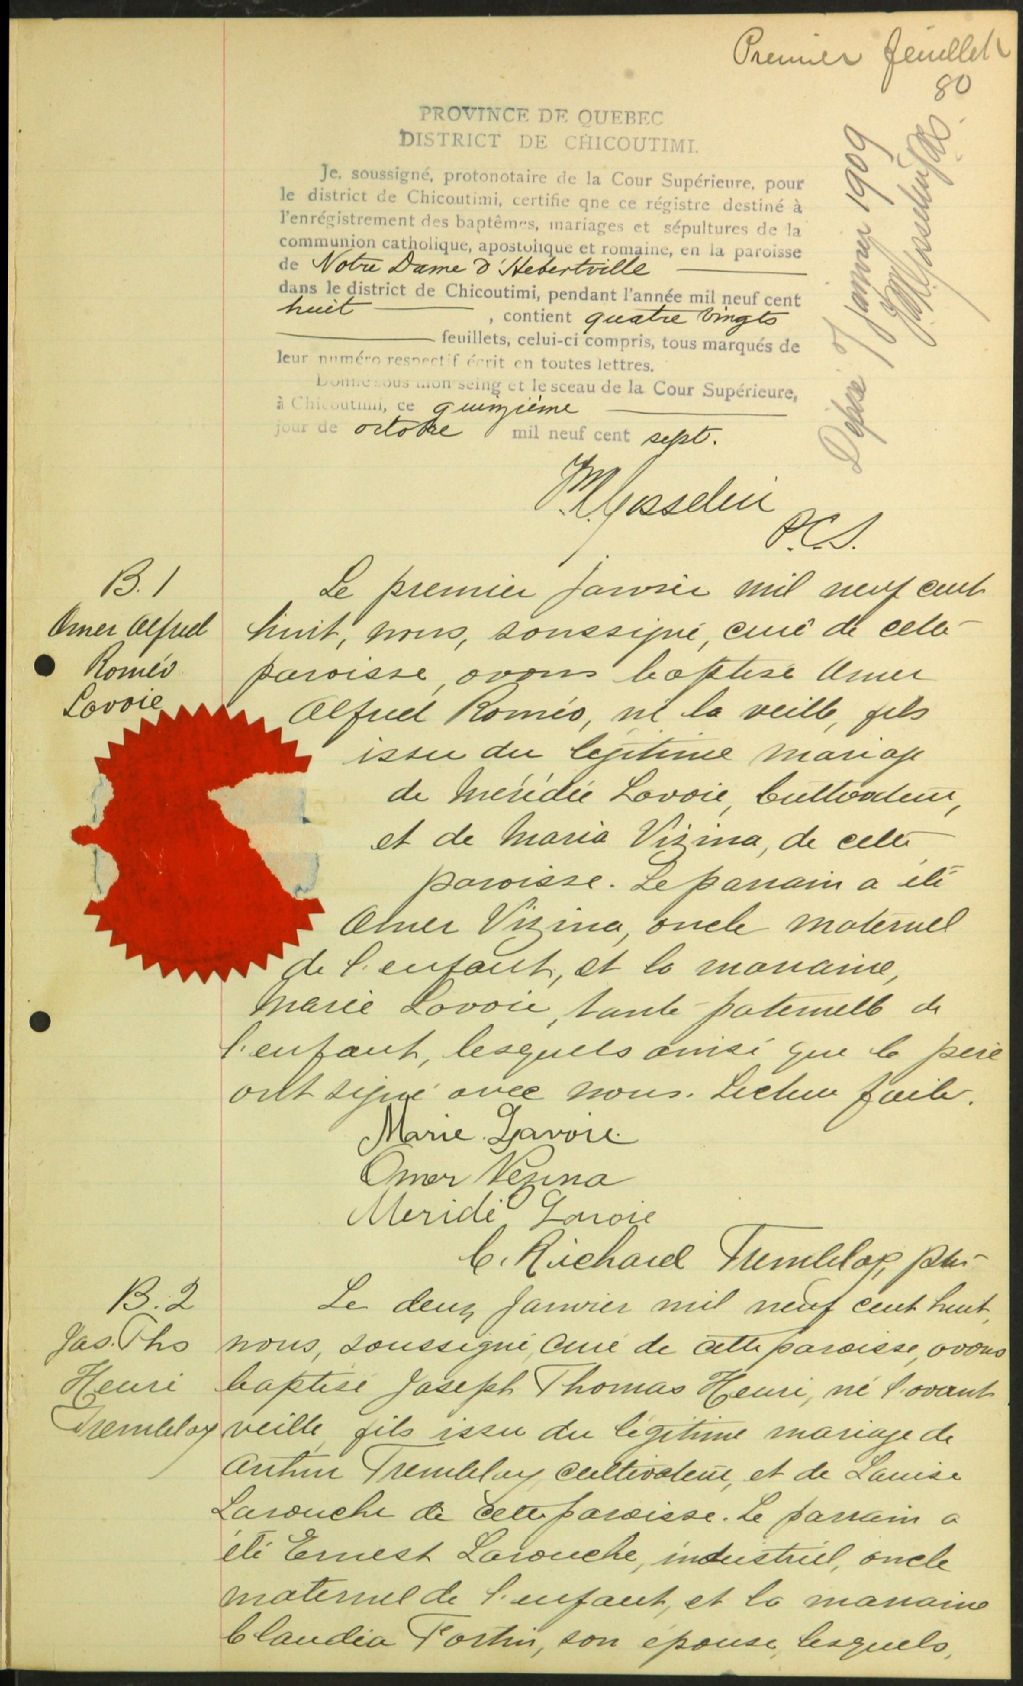 Premier feuillet
80
PROVINCE DE QUEBEC
DISTRICT DE CHICOUTIMI.
Je, soussigné, protonotaire de la Cour Supérieure, pour
le district de Chicoutimi, certifie qne ce régistre destiné à
l'enrégistrement des baptêmes, mariages et sépultures de la
communion catholique, apostolique et romaine, en la paroisse
de Notre Dame d'Hebertville
dans le district de Chicoutimi, pendant l'année mil neuf cent
huit, contient quatre vingts
feuillets, celui-ci compris, tous marqués de
leur numéro respectif écrit en toutes lettres.
Donné sous mon seing et le sceau de la Cour Supérieure,
à Chicoutimi, ce quinzième
jour de octobre mil neuf cent sept.
Gosselin
P.C.S.
Déposé 7 janvier 1909
Gosselin P.C.S.
B. 1
Omer Alfred
Roméo
Lavoie
Le premier janvier mil neuf cent
huit, nous, soussigné, curé de cette
paroisse, avons baptisé Omer
Alfred Roméo, né la veille, fils
issu du légitime mariage
de Méridée Lavoie, cultivateur,
et de Maria Vizina, de cette
paroisse. Le parrain a été
Omer Vizina, oncle maternel
de l'enfant, et la marraine,
Marie Lavoie, tante paternelle de
l'enfant, lesquels ainsi que le père
ont signé avec nous. Lecture faite.
Marie Lavoie
Omer Vezina
Meridé Lavoie
C. Richard Tremblay, ptre
B. 2
Jos. Ths
Henri
Tremblay
Le deux janvier mil neuf cent huit,
nous, soussigné, curé de cette paroisse, avons
baptisé Joseph Thomas Henri, né l'avant
veille, fils issu du légitime mariage de
Arthur Tremblay, cultivateur, et de Louise
Larouche de cette paroisse. Le parrain a
été Ernest Larouche, industriel, oncle
maternel de l'enfant, et la marraine
Claudia Fortin, son épouse, lesquels,